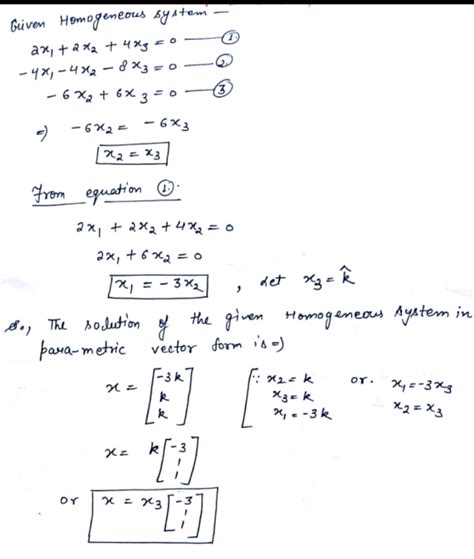 Given Homogeneous system —
2x₁ + 2x₂ + 4x₃ = 0 —— ①
-4x₁ - 4x₂ - 8x₃ = 0 —— ②
- 6x₂ + 6x₃ = 0 —— ③
⇒ -6x₂ = -6x₃
x₂ = x₃
From equation ①.
2x₁ + 2x₂ + 4x₂ = 0
2x₁ + 6x₂ = 0
x₁ = -3x₂ , let x₃ = k̂
So, The solution of the given Homogeneous system in
para-metric vector form is ⇒
x = [-3k k k] [∵ x₂ = k x₃ = k x₁ = -3k or. x₁ = -3x₃ x₂ = x₃
x = k [-3 1 1]
or x = x₃ [-3 1 1]